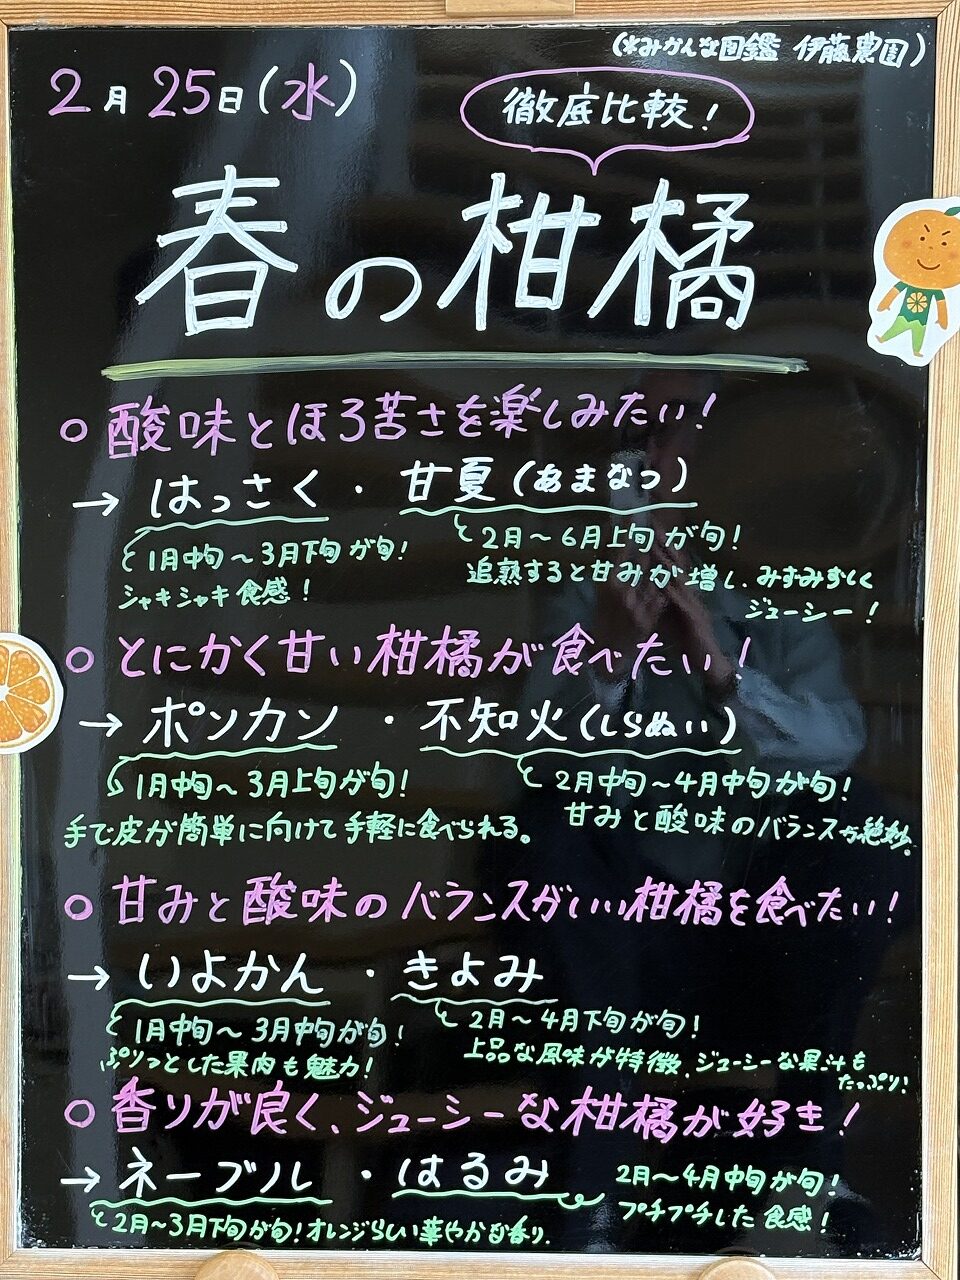 (*みかんな図鑑 伊藤農園)
2月25日(水)
徹底比較!
春の柑橘
○ 酸味とほろ苦さを楽しみたい!
→ はっさく ・ 甘夏(あまなつ)
1月中旬～3月下旬が旬!
シャキシャキ食感!
2月～6月上旬が旬!
追熟すると甘みが増し、みずみずしく
ジューシー!
○ とにかく甘い柑橘が食べたい!
→ ポンカン ・ 不知火(しらぬい)
1月中旬～3月上旬が旬!
手で皮が簡単に向けて手軽に食べられる。
2月中旬～4月中旬が旬!
甘みと酸味のバランスが絶妙。
○ 甘みと酸味のバランスがいい柑橘を食べたい!
→ いよかん ・ きよみ
1月中旬～3月中旬が旬!
ぷりっとした果肉も魅力!
2月～4月下旬が旬!
上品な風味が特徴、ジューシーな果汁も
たっぷり!
○ 香りが良く、ジューシーな柑橘が好き!
→ ネーブル ・ はるみ
2月～3月下旬が旬!オレンジらしい華やかな香り.
2月～4月中旬が旬!
プチプチした食感!